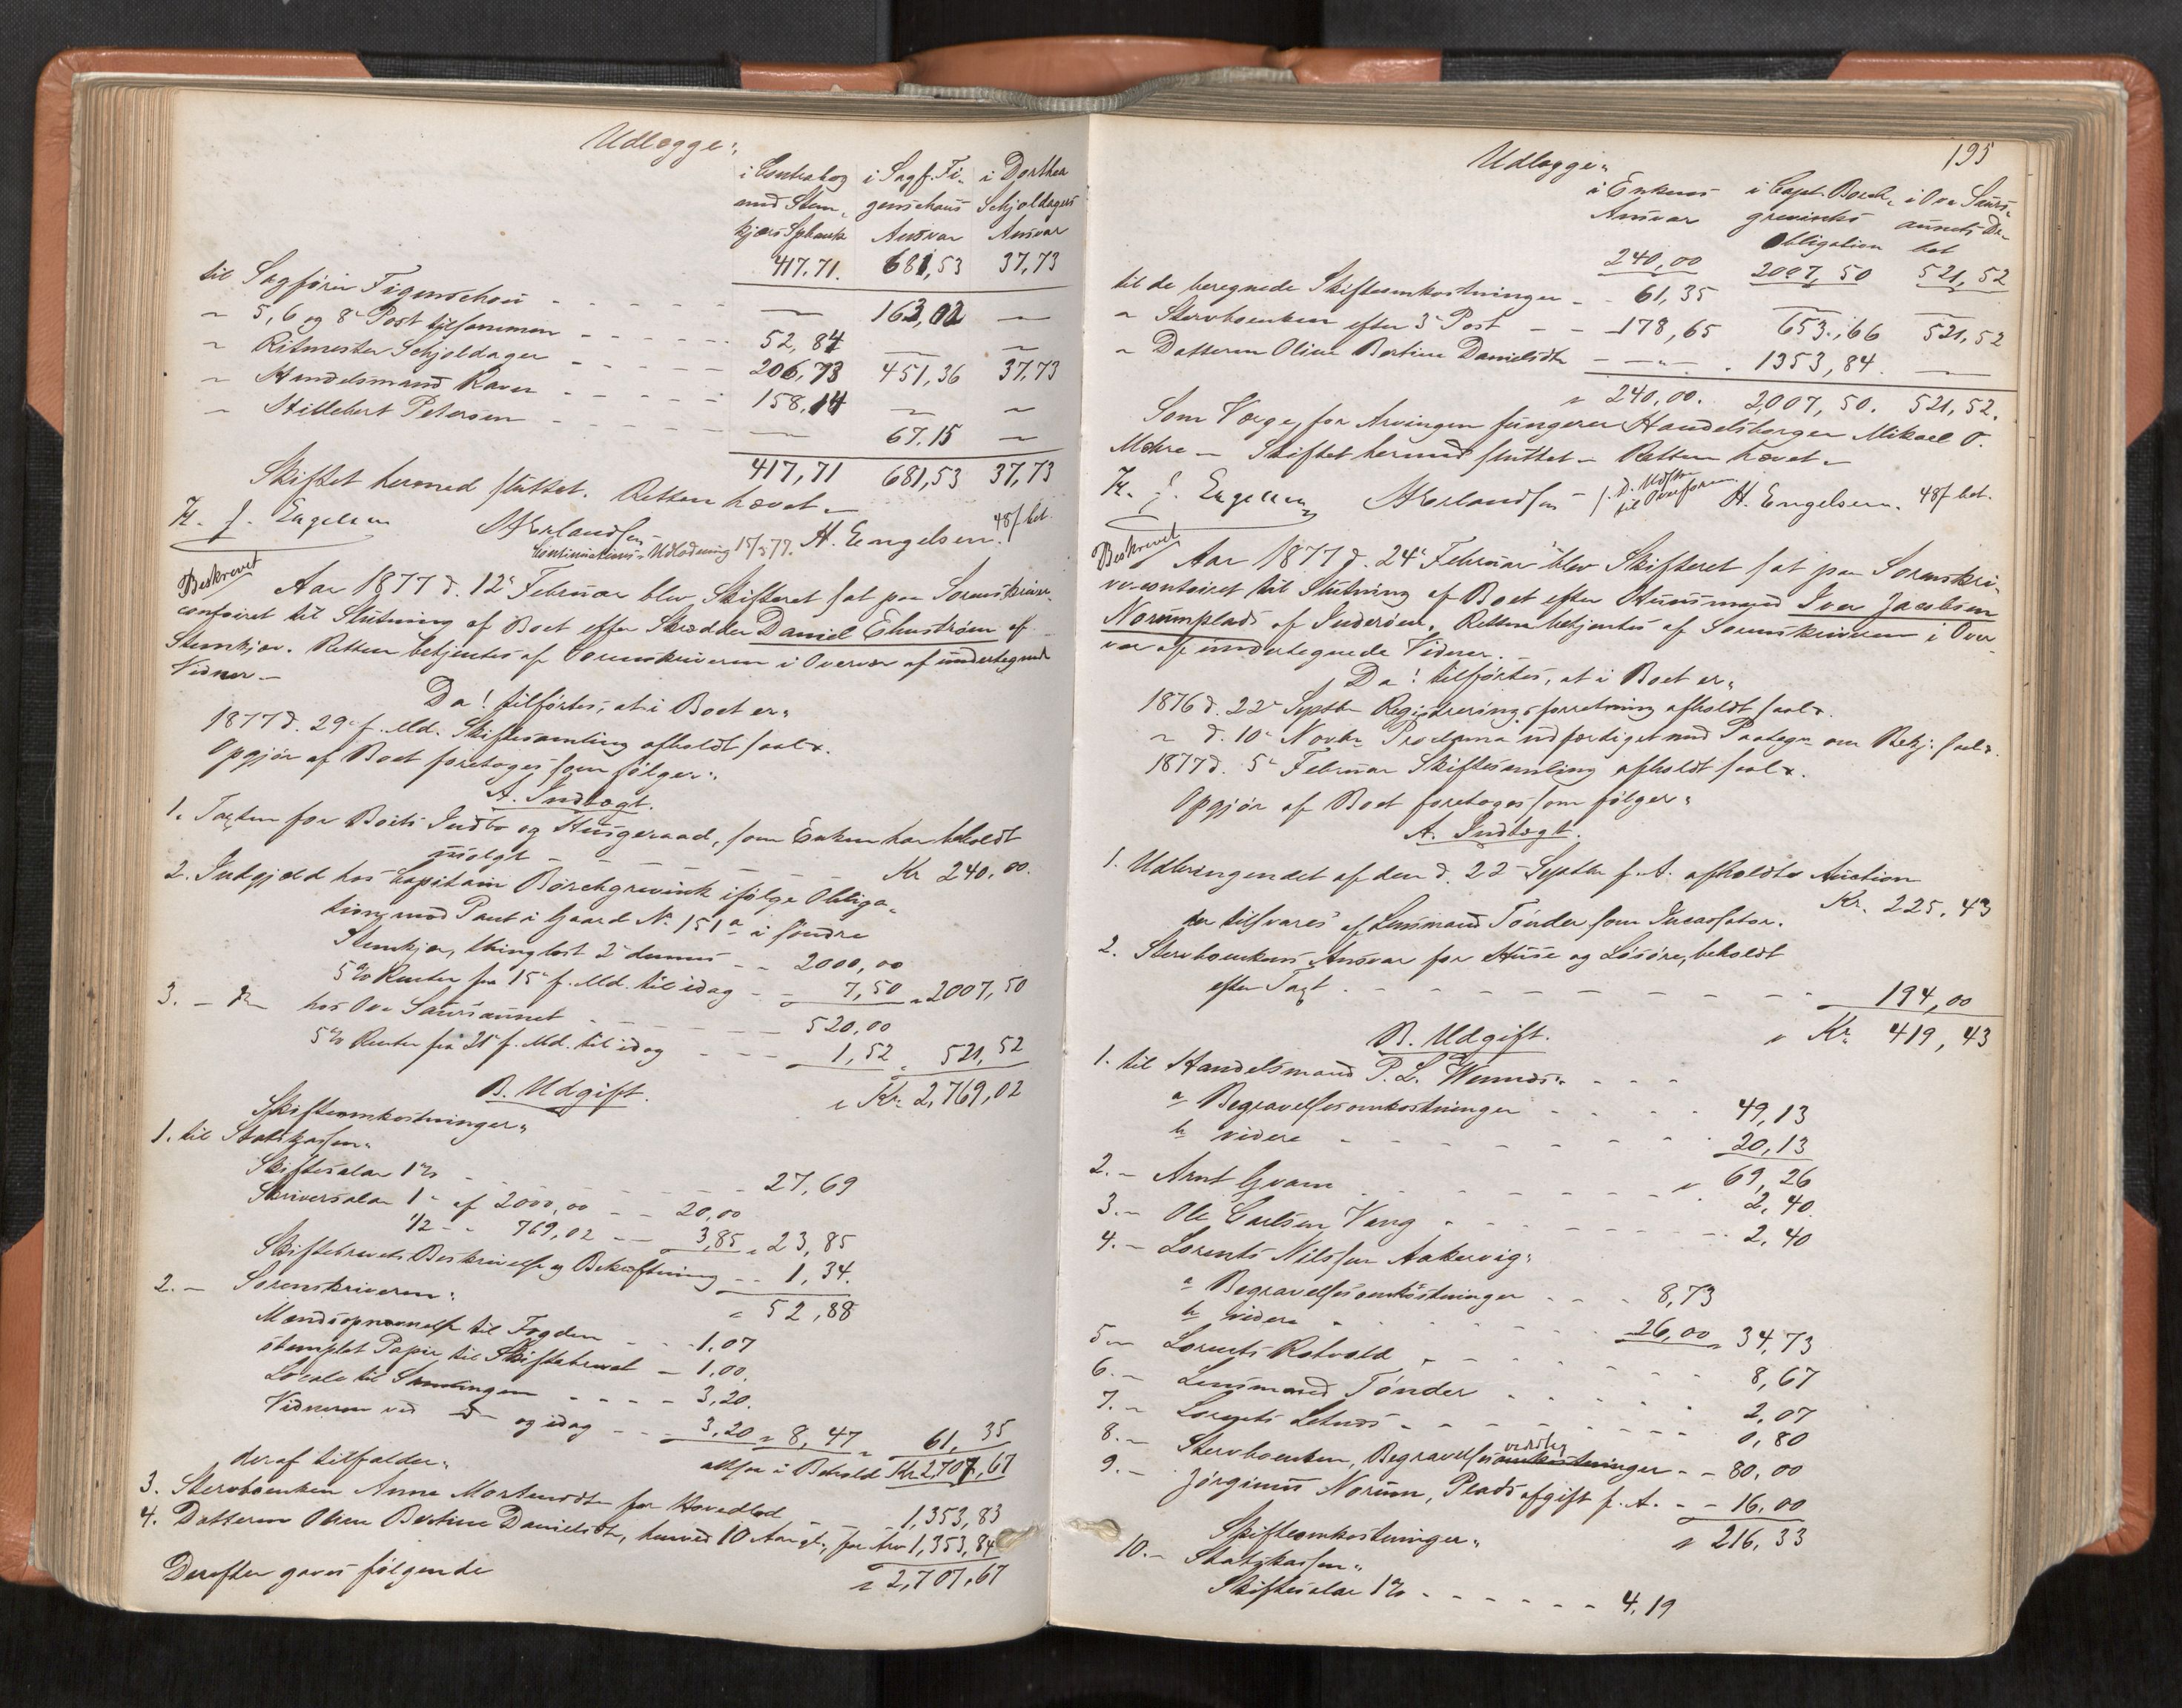 Udlægge:
i Contrabog i Sagf. Fi- i Dorthea
med Sten- genschous Schjoldagers
kjærs Spbank Ansvar Ansvar
417,71. 681,53 37,73
til Sagfører Figenschou - - - - - — 163,02 —
" 5, 6 og 8de Post tilsammen - - - - - 52,84 — —
" Ritmester Schjoldager - - - - - 206,73 451,36 37,73
" Handelsmand Raven - - - - - 158,14 — —
" Hillebert Petersen - - - - - — 67.15 —
417,71 681,53 37,73
Skiftet hermed sluttet. Retten hævet.
H. J. Engelsen M Erlandsen H. Engelsen. 48 f bet.
Continuations-Udlodning 15/3 77.
Beskrevet
Aar 1877 d. 12te Februar blev Skifteret sat paa Sorenskriver-
contoiret til Slutning af Boet efter Skrædder Daniel Ehnstrøm af
Stenkjær. Retten betjentes af Sorenskriveren i Overvær af undertegnede
Vidner -
Da! tilførtes, at i Boet er:
1877 d. 29de f. Md. Skiftesamling afholdt saal.
Opgjør af Boet foretoges som følger:
A. Indtægt.
1. Taxten for Boets Indbo og Husgeraad, som Enken har beholdt
usolgt - - - - - Kr 240.00.
2. Indgjæld hos Capitain Borchgrevink ifølge Obliga-
tion med Pant i Gaard No 151a i søndre
Stenkjær, thinglæst 2de dennes - - 2000,00
5% Renter fra 15de f. Md. til idag - - 7,50 " 2007,50
3. - do hos Ove Saursaunet - - - - - 520,00
5% Renter fra 21de f. Md. til idag - - - 1,52 " 521,52
" Kr. 2,769,02
B. Udgift.
Skifteomkostninger:
1. til Statskassen:
Skiftesalær 1% - - - - - - 27,69
Skriversalær 1% af 2000,00 - - 20,00
1/2 - - 769,02 - - 3,85 " 23,85
Skiftebrevets Beskrivelse og Bekræftning - - 1,34.
" 52,88
2. - Sorenskriveren:
Mændsopnævnelse til Fogden - - 1,07
stemplet Papir til Skiftebrevet - 1,00.
Locale til Samlingen - - - - 3,20.
Vidnerne ved do og idag - - - 3,20 " 8,47 " 61,35
altsaa i Behold Kr 2,707,67
deraf tilfalder:
3. Stervboenken Anne Mortensdtr for Hovedlod 1,353,83
4. Datteren Oline Bertine Danielsdtr, henved 10 Aar gl., for Arv 1,353,84
" 2,707,67
Derefter gaves følgende
195
Udlægge:
i Enkens i Capt. Borch- i Ove Saurs-
Ansvar grevinks aunets De-
Obligation bet
240,00 2007,50 521,52
til de beregnede Skifteomkostninger - - 61,35 — —
" Stervboenken efter 3de Post - - 178,65 653,66 521,52
" Datteren Oline Bertine Danielsdtr - - - - 1353,84. —
" 240,00. 2,007,50. 521,52.
Som Værge for Arvingen fungerer Handelsborger Mikael O.
Mæhre - Skiftet hermed sluttet - Retten hævet -
H. J. Engelsen M Erlandsen - H. Engelsen. 48 f bet.
Beskrevet
Aar 1877 d. 24de Februar blev Skifteret sat paa Sorenskri-
vercontoiret til Slutning af Boet efter Huusmand Iver Jacobsen
Norumplads af Inderøen. Retten betjentes af Sorenskriveren i Over-
vær af undertegnede Vidner.
Da! tilførtes, at i Boet er:
1876 d. 22de Septbr Registreringsforretning afholdt saal.
" d. 10de Novbr Proclama udfærdiget med Paategn. om Bekj. saal.
1877 d. 5te Februar Skiftesamling afholdt saal.
Opgjør af Boet foretoges som følger:
A. Indtægt.
1. Udbringendet af den d. 22de Septbr f. A. afholdte Auction
der tilsvares af Lensmand Tønder som Incassator. Kr. 225.43
2. Stervboenkens Ansvar for Huse og Løsøre, beholdt
efter Taxt - - - - - - - - - 194,00
" Kr. 419,43
B. Udgift.
1. til Handelsmand P. L. Wennes: - - -
a Begravelsesomkostninger - - - - 49,13
b videre - - - - - - - 20,13
" 69,26
2. - Arnt Gvam - - - - - - - 2,40.
3. - Ole Carlsen Vang - - - - - - 2,40
4. - Lorents Nilssen Aakervig:
a Begravelsesomkostninger - - - 8,73
b videre - - - - - - 26,00 " 34,73
5 - Lorents Rotvold - - - - - - - 8,67
6. - Lensmand Tønder - - - - - - 2,07
7. - Lorents Letnes - - - - - - 0,80
8. - Stervboenken, Begravelsesomkostninger - - 80,00
9. - Jørginus Norum, Pladsafgift f. A. - - 16.00
" 216.33
Skifteomkostninger:
10. - Statskassen:
Skiftesalær 1% - - - - - - 4.19